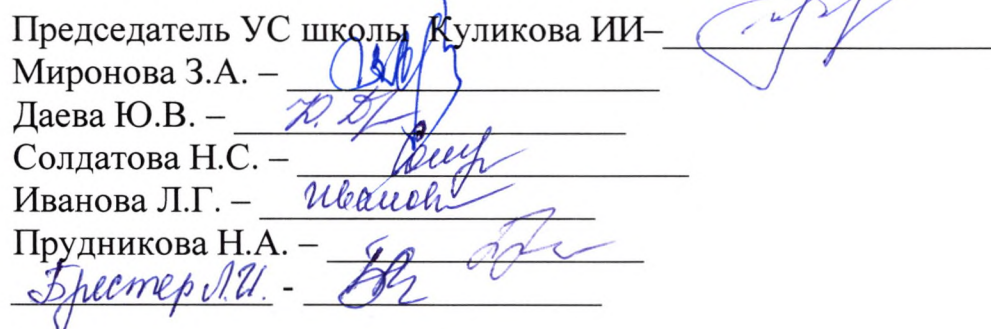 Председатель УС школы Куликова ИИ–
Миронова З.А. –
Даева Ю.В. –
Солдатова Н.С. –
Иванова Л.Г. – Иванов
Прудникова Н.А. –
Брестер Л.И. -